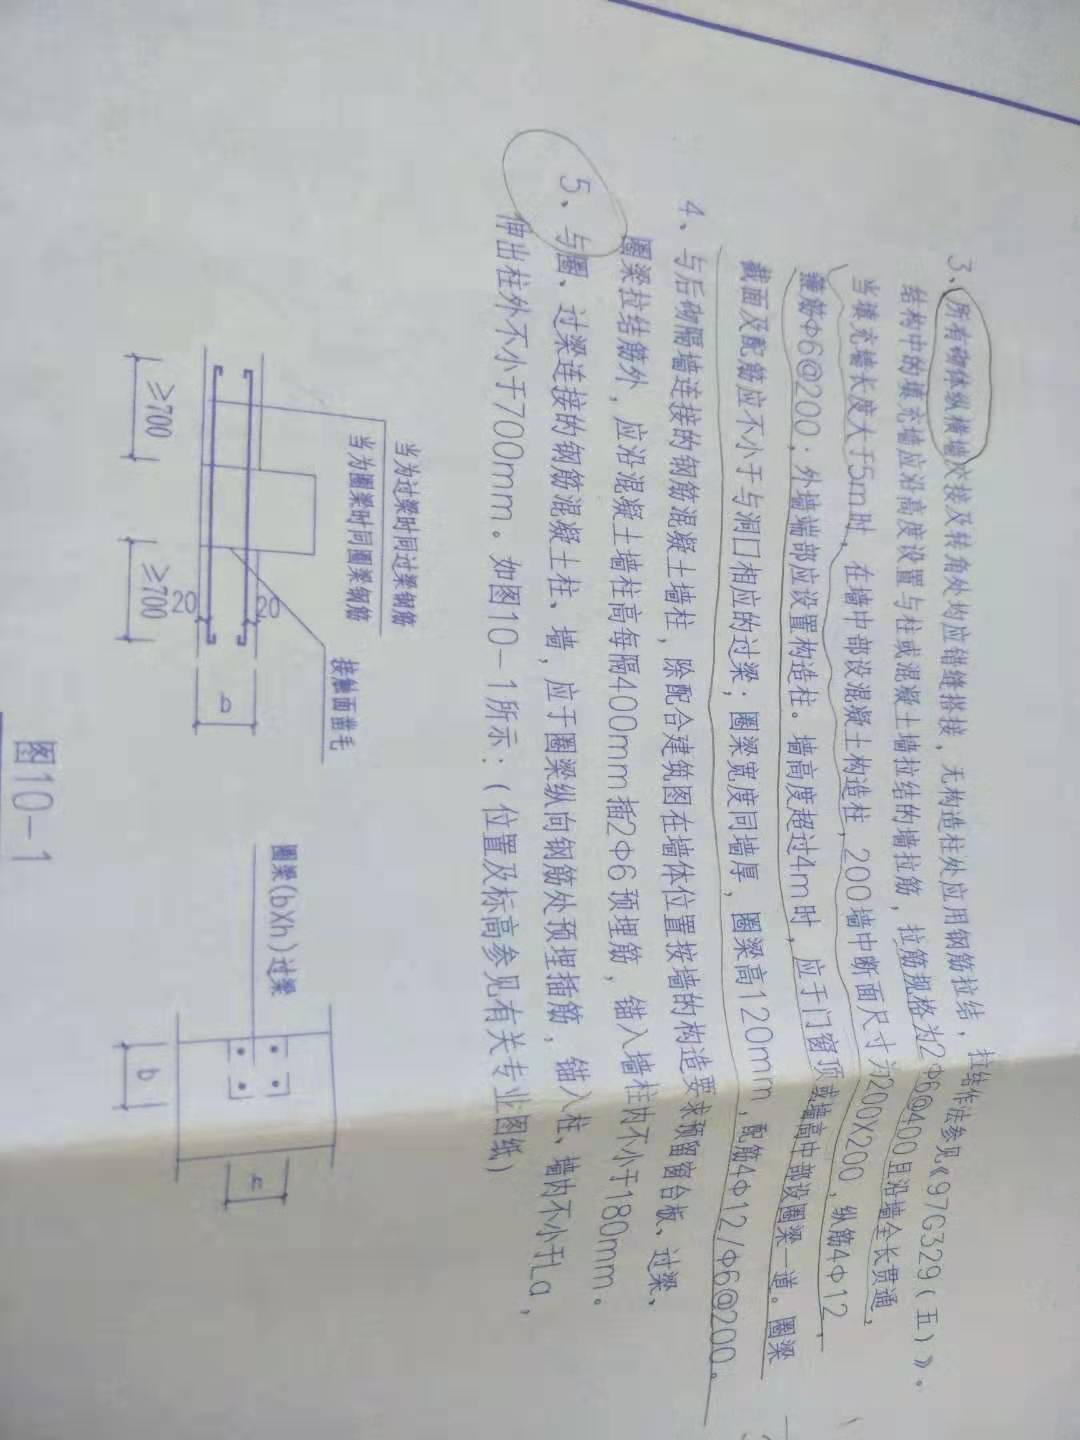 3、所有砌体纵横墙交接及转角处均应错缝搭接，无构造柱处应用钢筋拉结，拉结作法参见《97G329(五)》。
结构中的填充墙应沿高度设置与柱或混凝土墙拉结的墙拉筋，拉筋规格为2Φ6@400且沿墙全长贯通，
当填充墙长度大于5m时，在墙中部设混凝土构造柱，200墙中断面尺寸为200X200，纵筋4Φ12，
箍筋Φ6@200．外墙端部应设置构造柱。墙高度超过4m时，应于门窗顶或墙高中部设圈梁一道。圈梁
截面及配筋应不小于与洞口相应的过梁；圈梁宽度同墙厚，圈梁高120mm，配筋4Φ12/Φ6@200。
4、与后砌隔墙连接的钢筋混凝土墙柱，除配合建筑图在墙体位置按墙的构造要求预留窗台板、过梁、
圈梁拉结筋外，应沿混凝土墙柱高每隔400mm插2Φ6预埋筋，锚入墙柱内不小于180mm。
5、与圈、过梁连接的钢筋混凝土柱、墙，应于圈梁纵向钢筋处预埋插筋，锚入柱、墙内不小于La，
伸出柱外不小于700mm。如图10-1所示：(位置及标高参见有关专业图纸)
当为过梁时同过梁钢筋
当为圈梁时同圈梁钢筋
接触面凿毛
≥700
≥700
20
20
圈梁(bXh)过梁
b
h
图10-1